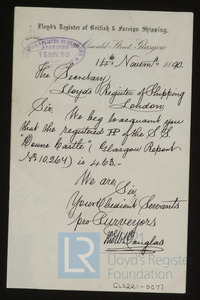 Lloyd's Register of British & Foreign Shipping,
Oswald Street, Glasgow
15 NOV 90
14th Novem. 1890.
The Secretary
Lloyd's Register of Shipping
London
Sir, We beg to acquaint you
that the registered HP of the S.S.
"Doune Castle" (Glasgow Report
No 10,264) is 463.
We are
Sir,
Your Obedient Servants
pro Surveyors
Douglas
LR Lloyd's Register
Foundation
GLS221-0077